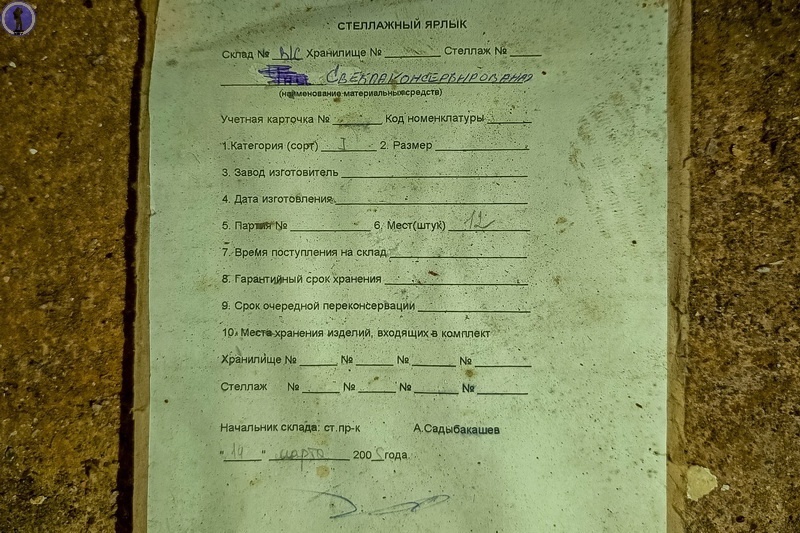 СТЕЛЛАЖНЫЙ ЯРЛЫК
Склад № ПС Хранилище № ______ Стеллаж № ____
СВЕКЛА КОНСЕРВИРОВАНАЯ
(наименование материальных средств)
Учетная карточка № ______ Код номенклатуры ______
1.Категория (сорт) I 2. Размер ______
3. Завод изготовитель ______
4. Дата изготовления ______
5. Партия № ______ 6. Мест(штук) 12
7. Время поступления на склад ______
8. Гарантийный срок хранения ______
9. Срок очередной переконсервации ______
10. Места хранения изделий, входящих в комплект
Хранилище № ____ № ____ № ____ № ____
Стеллаж № ____ № ____ № ____ № ____
Начальник склада: ст.пр-к А.Садыбакашев
"14" марта 200 года.